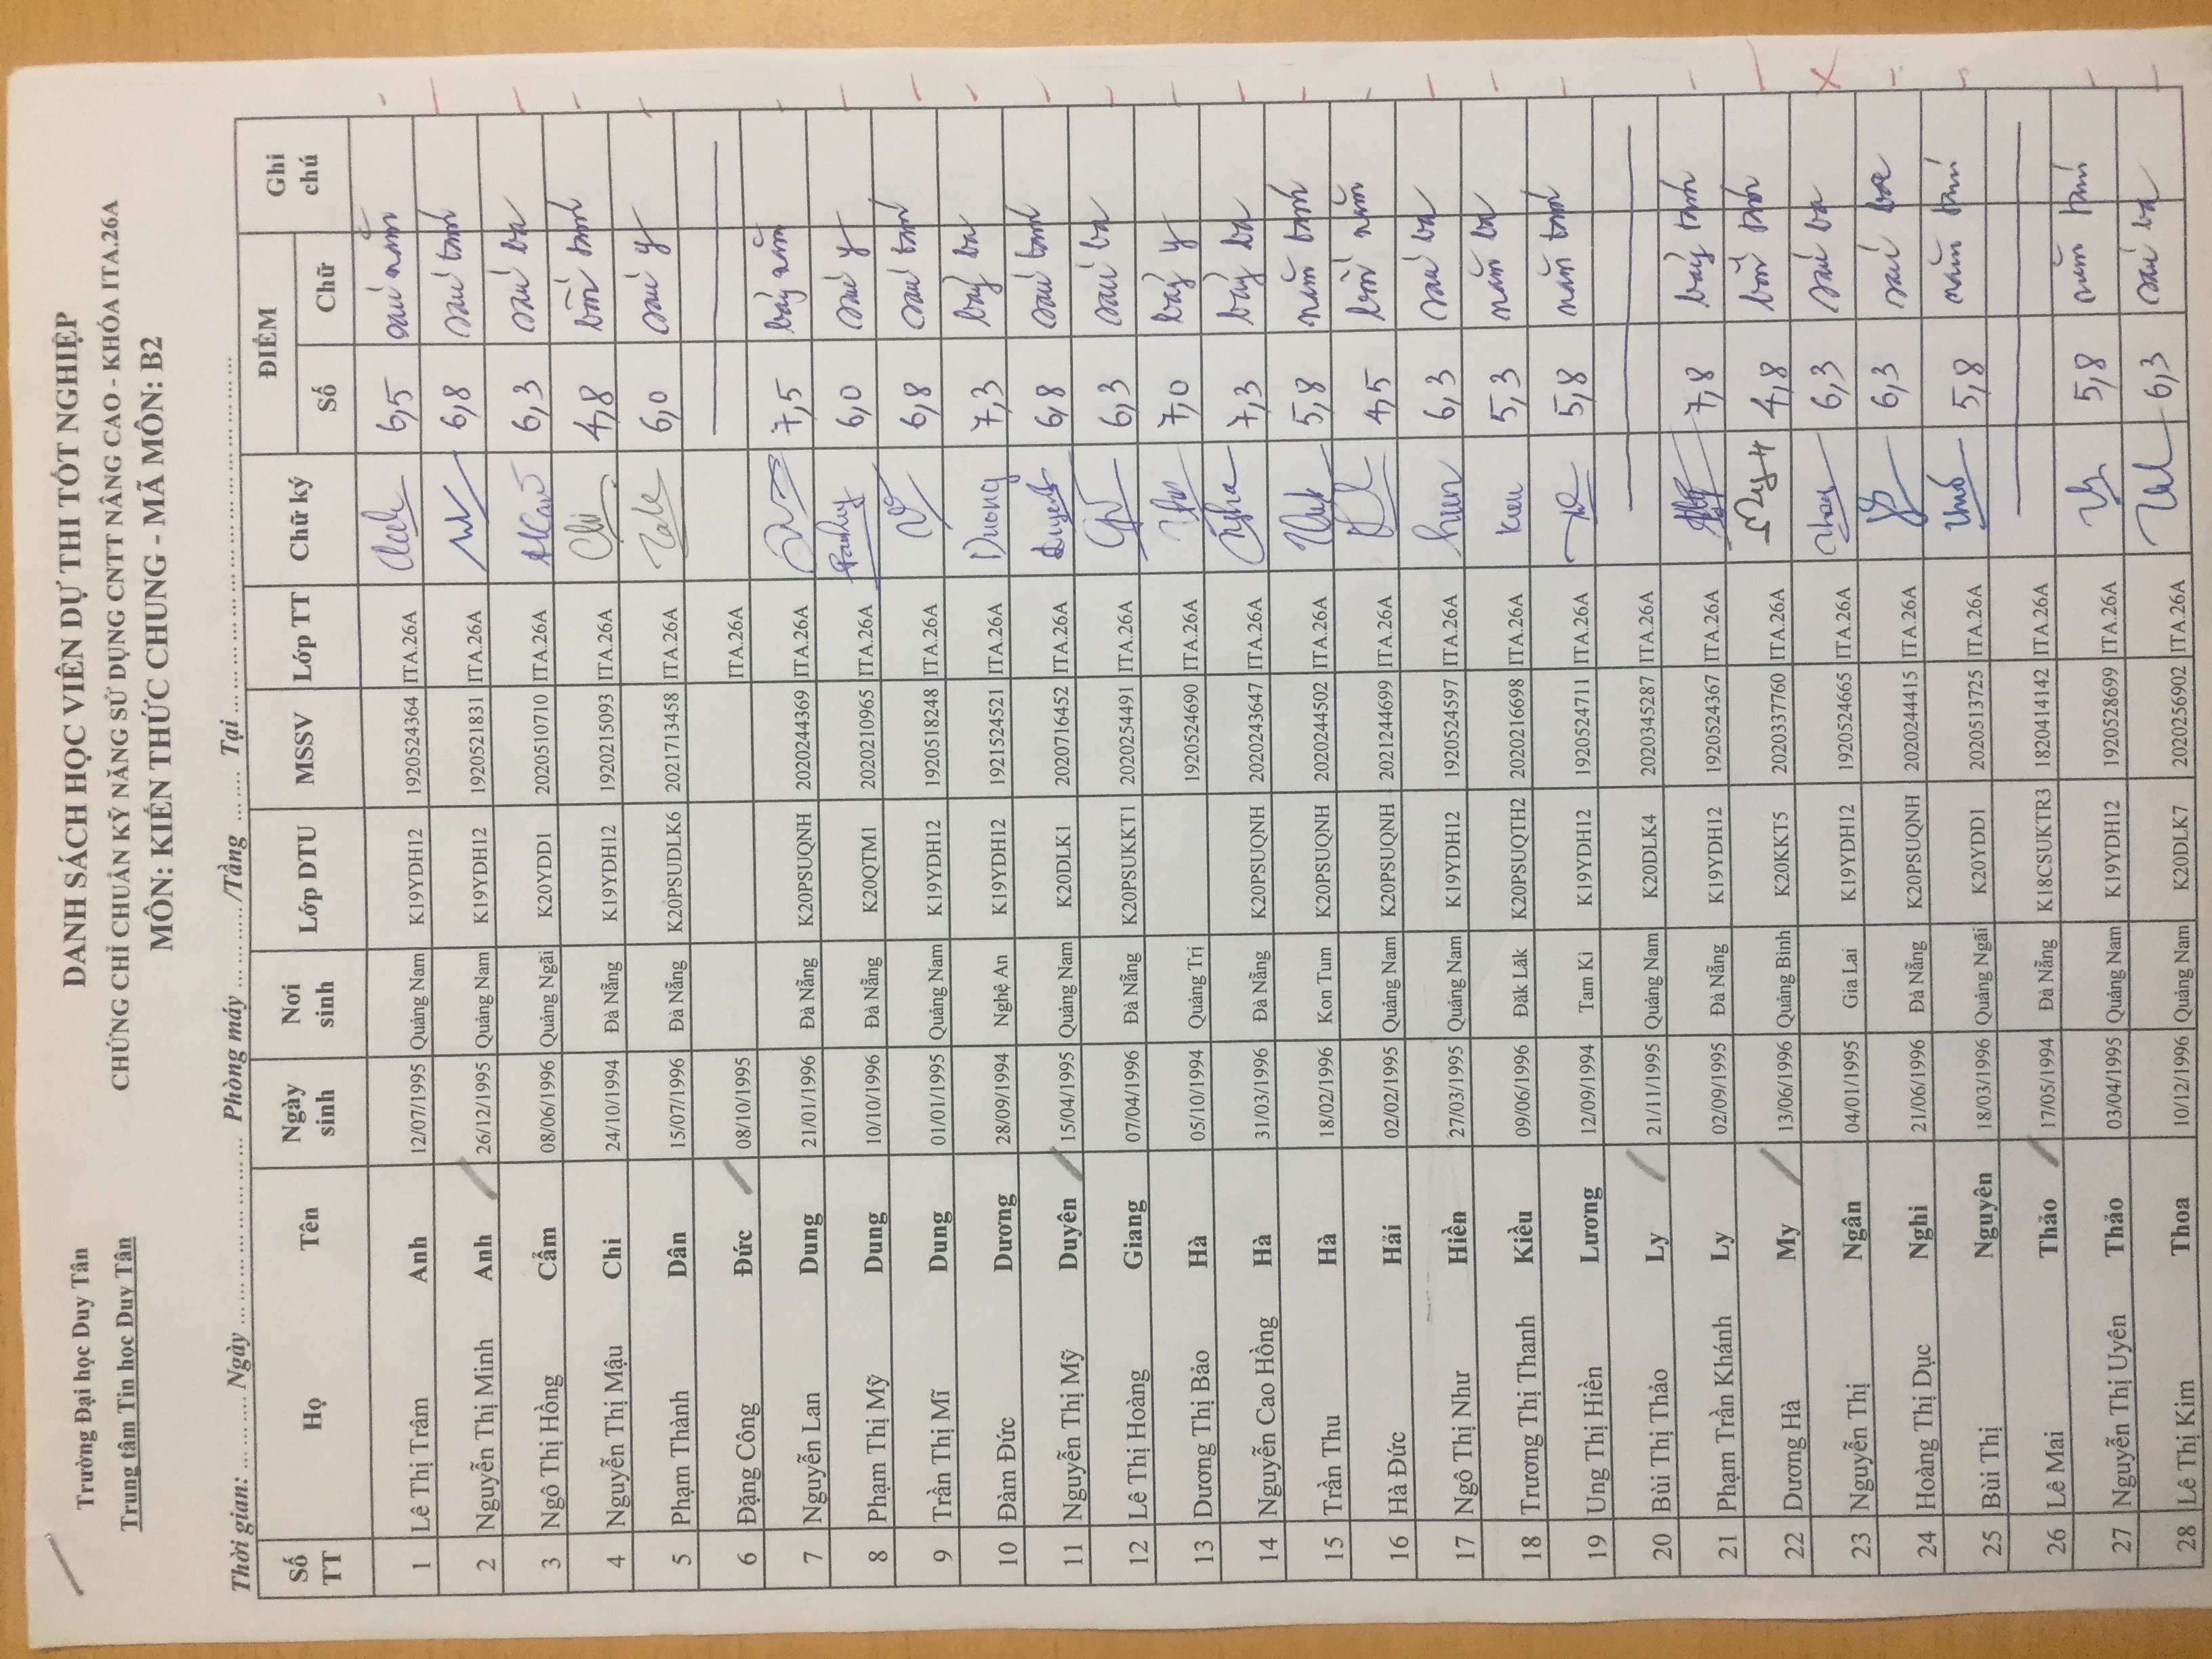 Trường Đại học Duy Tân
Trung tâm Tin học Duy Tân
DANH SÁCH HỌC VIÊN DỰ THI TỐT NGHIỆP
CHỨNG CHỈ CHUẨN KỸ NĂNG SỬ DỤNG CNTT NÂNG CAO - KHÓA ITA.26A
MÔN: KIẾN THỨC CHUNG - MÃ MÔN: B2
Thời gian: ............ Ngày .............................. Phòng máy ............/Tầng ......... Tại ..............................
Số TT Họ Tên Ngày sinh Nơi sinh Lớp DTU MSSV Lớp TT Chữ ký ĐIỂM Số Chữ Ghi chú
1 Lê Thị Trâm Anh 12/07/1995 Quảng Nam K19YDH12 1920524364 ITA.26A 6,5 sáu năm
2 Nguyễn Thị Minh Anh 26/12/1995 Quảng Nam K19YDH12 1920521831 ITA.26A 6,8 sáu tám
3 Ngô Thị Hồng Cẩm 08/06/1996 Quảng Ngãi K20YDD1 2020510710 ITA.26A 6,3 sáu ba
4 Nguyễn Thị Mậu Chi 24/10/1994 Đà Nẵng K19YDH12 1920215093 ITA.26A Chi 4,8 bốn tám
5 Phạm Thành Dân 15/07/1996 Đà Nẵng K20PSUDLK6 2021713458 ITA.26A 6,0 sáu y
6 Đặng Công Đức 08/10/1995 ITA.26A
7 Nguyễn Lan Dung 21/01/1996 Đà Nẵng K20PSUQNH 2020244369 ITA.26A 7,5 bảy năm
8 Phạm Thị Mỹ Dung 10/10/1996 Đà Nẵng K20QTM1 2020210965 ITA.26A 6,0 sáu y
9 Trần Thị Mĩ Dung 01/01/1995 Quảng Nam K19YDH12 1920518248 ITA.26A 6,8 sáu tám
10 Đàm Đức Dương 28/09/1994 Nghệ An K19YDH12 1921524521 ITA.26A Dương 7,3 bảy ba
11 Nguyễn Thị Mỹ Duyên 15/04/1995 Quảng Nam K20DLK1 2020716452 ITA.26A Duyên 6,8 sáu tám
12 Lê Thị Hoàng Giang 07/04/1996 Đà Nẵng K20PSUKKT1 2020254491 ITA.26A 6,3 sáu ba
13 Dương Thị Bảo Hà 05/10/1994 Quảng Trị 1920524690 ITA.26A 7,0 bảy y
14 Nguyễn Cao Hồng Hà 31/03/1996 Đà Nẵng K20PSUQNH 2020243647 ITA.26A 7,3 bảy ba
15 Trần Thu Hà 18/02/1996 Kon Tum K20PSUQNH 2020244502 ITA.26A 5,8 năm tám
16 Hà Đức Hải 02/02/1995 Quảng Nam K20PSUQNH 2021244699 ITA.26A 4,5 bốn năm
17 Ngô Thị Như Hiền 27/03/1995 Quảng Nam K19YDH12 1920524597 ITA.26A 6,3 sáu ba
18 Trương Thị Thanh Kiều 09/06/1996 Đăk Lăk K20PSUQTH2 2020216698 ITA.26A 5,3 năm ba
19 Ung Thị Hiền Lương 12/09/1994 Tam Kì K19YDH12 1920524711 ITA.26A 5,8 năm tám
20 Bùi Thị Thảo Ly 21/11/1995 Quảng Nam K20DLK4 2020345287 ITA.26A
21 Phạm Trần Khánh Ly 02/09/1995 Đà Nẵng K19YDH12 1920524367 ITA.26A 7,8 bảy tám
22 Dương Hà My 13/06/1996 Quảng Bình K20KKT5 2020337760 ITA.26A 4,8 bốn tám
23 Nguyễn Thị Ngân 04/01/1995 Gia Lai K19YDH12 1920524665 ITA.26A 6,3 sáu ba
24 Hoàng Thị Dục Nghi 21/06/1996 Đà Nẵng K20PSUQNH 2020244415 ITA.26A 6,3 sáu ba
25 Bùi Thị Nguyên 18/03/1996 Quảng Ngãi K20YDD1 2020513725 ITA.26A 5,8 năm tám
26 Lê Mai Thảo 17/05/1994 Đà Nẵng K18CSUKTR3 1820414142 ITA.26A
27 Nguyễn Thị Uyên Thảo 03/04/1995 Quảng Nam K19YDH12 1920528699 ITA.26A 5,8 năm tám
28 Lê Thị Kim Thoa 10/12/1996 Quảng Nam K20DLK7 2020256902 ITA.26A 6,3 sáu ba